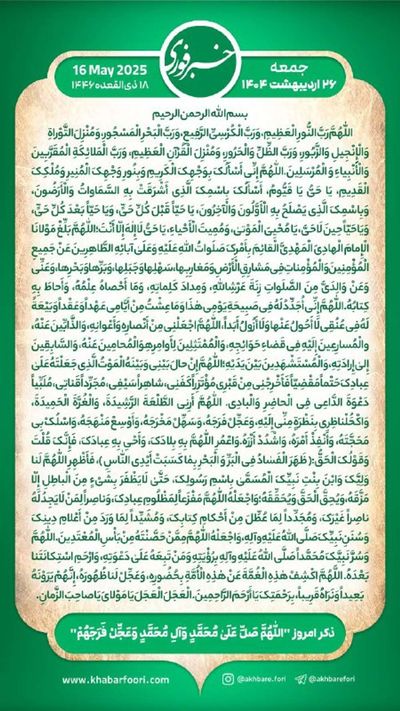 خبرفوری
جمعه
۲۶ اردیبهشت ۱۴۰۴
16 May 2025
۱۸ ذی‌القعده ۱۴۴۶
بسم الله الرحمن الرحیم
اللّٰهُمَّ رَبَّ النُّورِ الْعَظِیمِ، وَرَبَّ الْکُرْسِیِّ الرَّفِیعِ، وَرَبَّ الْبَحْرِ الْمَسْجُورِ، وَمُنْزِلَ التَّوْرَاةِ
وَالْإِنْجِیلِ وَالزَّبُورِ، وَرَبَّ الظِّلِّ وَالْحَرُورِ، وَمُنْزِلَ الْقُرْآنِ الْعَظِیمِ، وَرَبَّ الْمَلائِکَةِ الْمُقَرَّبِینَ
وَالْأَنْبِیاءِ وَ الْمُرْسَلِینَ. اللّٰهُمَّ إِنِّی أَسْأَلُکَ بِوَجْهِکَ الْکَرِیمِ، وَبِنُورِ وَجْهِکَ الْمُنِیرِ وَمُلْکِکَ
الْقَدِیمِ، یَا حَیُّ یَا قَیُّومُ، أَسْأَلُکَ بِاسْمِکَ الَّذِی أَشْرَقَتْ بِهِ السَّمَاوَاتُ وَالْأَرَضُونَ،
وَبِاسْمِکَ الَّذِی یَصْلَحُ بِهِ الْأَوَّلُونَ وَالْآخِرُونَ، یَا حَیّاً قَبْلَ کُلِّ حَیٍّ، وَیَا حَیّاً بَعْدَ کُلِّ حَیٍّ،
وَیَا حَیّاً حِینَ لَاحَیَّ، یَا مُحْیِیَ الْمَوْتىٰ، وَمُمِیتَ الْأَحْیاءِ، یَا حَیُّ لَاإِلٰهَ إِلّا أَنْتَ؛ اللّٰهُمَّ بَلِّغْ مَوْلانَا
الْإِمامَ الْهادِیَ الْمَهْدِیَّ الْقائِمَ بِأَمْرِکَ صَلَواتُ اللهِ عَلَیْهِ وَعَلىٰ آبائِهِ الطَّاهِرِینَ عَنْ جَمِیعِ
الْمُؤْمِنِینَ وَالْمُؤْمِناتِ فِی مَشارِقِ الْأَرْضِ وَمَغارِبِها، سَهْلِها وَجَبَلِها، وَبَرِّها وَبَحْرِها، وَعَنِّی
وَعَنْ وَالِدَیَّ مِنَ الصَّلَواتِ زِنَةَ عَرْشِ اللهِ، وَمِدادَ کَلِماتِهِ، وَمَا أَحْصاهُ عِلْمُهُ، وَأَحاطَ بِهِ
کِتابُهُ. اللّٰهُمَّ إِنِّی أُجَدِّدُ لَهُ فِی صَبِیحَةِ یَوْمِی هٰذَا وَمَا عِشْتُ مِنْ أَیَّامِی عَهْداً وَعَقْداً وَبَیْعَةً
لَهُ فِی عُنُقِی لَاأَحُولُ عَنْها وَلَاأَزُولُ أَبَداً، اللّٰهُمَّ اجْعَلْنِی مِنْ أَنْصارِهِ وَأَعْوانِهِ، وَالذَّابِّینَ عَنْهُ،
وَالْمُسارِعِینَ إِلَیْهِ فِی قَضاءِ حَوَائِجِهِ، وَالْمُمْتَثِلِینَ لِأَوامِرِهِ وَالْمُحامِینَ عَنْهُ، وَالسَّابِقِینَ
إِلىٰ إِرادَتِهِ، وَالْمُسْتَشْهَدِینَ بَیْنَ یَدَیْهِ؛ اللّٰهُمَّ إِنْ حالَ بَیْنِی وَبَیْنَهُ الْمَوْتُ الَّذِی جَعَلْتَهُ عَلىٰ
عِبادِکَ حَتْماً مَقْضِیّاً فَأَخْرِجْنِی مِنْ قَبْرِی مُؤْتَزِراً کَفَنِی، شاهِراً سَیْفِی، مُجَرِّداً قَناتِی، مُلَبِّیاً
دَعْوَةَ الدَّاعِی فِی الْحاضِرِ وَالْبادِی. اللّٰهُمَّ أَرِنِی الطَّلْعَةَ الرَّشِیدَةَ، وَالْغُرَّةَ الْحَمِیدَةَ،
وَاکْحُلْ ناظِرِی بِنَظْرَةٍ مِنِّی إِلَیْهِ، وَعَجِّلْ فَرَجَهُ، وَسَهِّلْ مَخْرَجَهُ، وَأَوْسِعْ مَنْهَجَهُ، وَاسْلُکْ بِی
مَحَجَّتَهُ، وَأَنْفِذْ أَمْرَهُ، وَاشْدُدْ أَزْرَهُ، وَاعْمُرِ اللّٰهُمَّ بِهِ بِلادَکَ، وَأَحْیِ بِهِ عِبادَکَ، فَإِنَّکَ قُلْتَ
وَقَوْلُکَ الْحَقُّ: (ظَهَرَ الْفَسَادُ فِی الْبَرِّ وَالْبَحْرِ بِمَا کَسَبَتْ أَیْدِی النَّاسِ)، فَأَظْهِرِ اللّٰهُمَّ لَنا
وَلِیَّکَ وَابْنَ بِنْتِ نَبِیِّکَ الْمُسَمَّىٰ بِاسْمِ رَسُولِکَ، حَتَّىٰ لَایَظْفَرَ بِشَیْءٍ مِنَ الْباطِلِ إِلّا
مَزَّقَهُ، وَیُحِقَّ الْحَقَّ وَیُحَقِّقَهُ؛ وَاجْعَلْهُ اللّٰهُمَّ مَفْزَعاً لِمَظْلُومِ عِبادِکَ، وَناصِراً لِمَنْ لَایَجِدُ لَهُ
ناصِراً غَیْرَکَ، وَمُجَدِّداً لِمَا عُطِّلَ مِنْ أَحْکامِ کِتابِکَ، وَمُشَیِّداً لِمَا وَرَدَ مِنْ أَعْلامِ دِینِکَ
وَسُنَنِ نَبِیِّکَ صَلَّى اللهُ عَلَیْهِ وَآلِهِ، وَاجْعَلْهُ اللّٰهُمَّ مِمَّنْ حَصَّنْتَهُ مِنْ بَأْسِ الْمُعْتَدِینَ. اللّٰهُمَّ
وَسُرَّ نَبِیَّکَ مُحَمَّداً صَلَّى اللهُ عَلَیْهِ وَآلِهِ بِرُؤْیَتِهِ وَمَنْ تَبِعَهُ عَلىٰ دَعْوَتِهِ، وَارْحَمِ اسْتِکانَتَنا
بَعْدَهُ. اللّٰهُمَّ اکْشِفْ هٰذِهِ الْغُمَّةَ عَنْ هٰذِهِ الْأُمَّةِ بِحُضُورِهِ، وَعَجِّلْ لَنا ظُهُورَهُ، إِنَّهُمْ یَرَوْنَهُ
بَعِیداً وَنَرَاهُ قَرِیباً، بِرَحْمَتِکَ یَا أَرْحَمَ الرَّاحِمِینَ. الْعَجَلَ الْعَجَلَ یَا مَوْلایَ یَا صاحِبَ الزَّمانِ.
ذکر امروز "اللّٰهُمَّ صَلِّ عَلىٰ مُحَمَّدٍ وَآلِ مُحَمَّدٍ وَعَجِّلْ فَرَجَهُمْ"
www.khabarfoori.com
@akhbare.fori
@akhbarefori